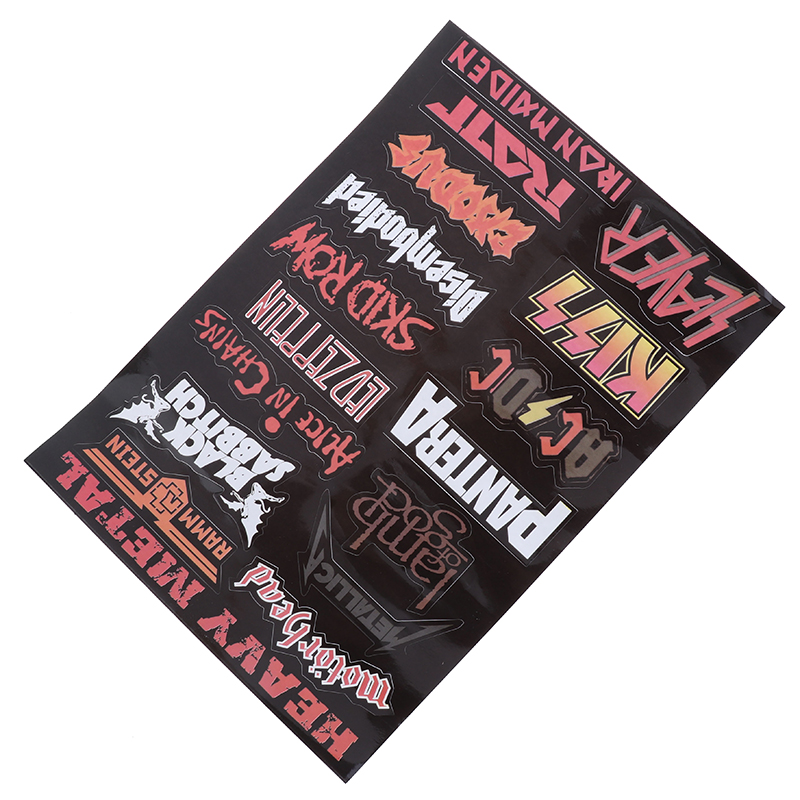 IRON MAIDEN
RATT
EXODUS
Disembodied
SKID ROW
LED ZEPPELIN
ALICE IN CHAINS
BLACK
SABBITCH
RAMM STEIN
HEAVY METAL
SLAYER
KISS
AC/DC
PANTERA
lamb
of
god
METALLICA
motörhead